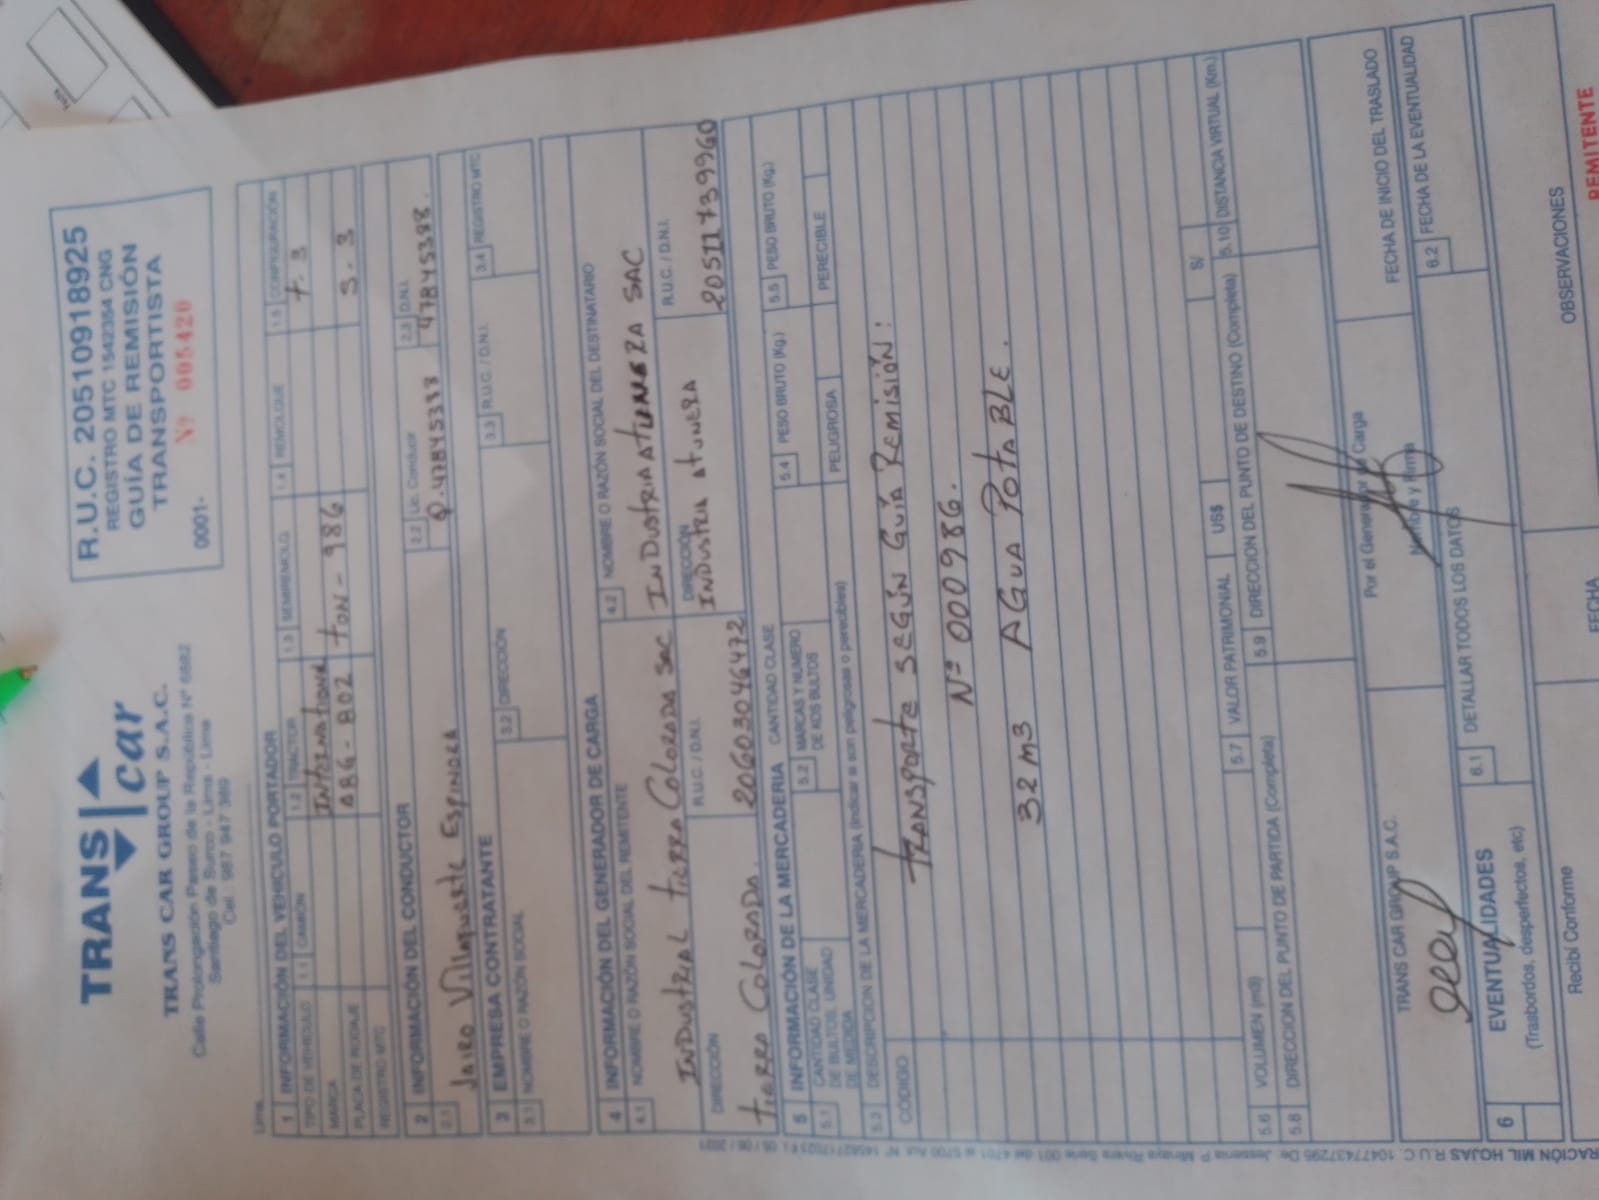 TRANS
car
TRANS CAR GROUP S.A.C.
Calle Prolongación Paseo de la República Nº 6682
Santiago de Surco - Lima - Lima
Cel.: 987 947 389
R.U.C. 20510918925
REGISTRO MTC 1542354 CNG
GUÍA DE REMISIÓN
TRANSPORTISTA
0001- Nº 005420
Lima,
1 INFORMACIÓN DEL VEHICULO PORTADOR
TIPO DE VEHICULO 1.1 CAMIÓN 1.2 TRACTOR 1.3 SEMIREMOLQ. 1.4 REMOLQUE 1.5 CONFIGURACIÓN
MARCA INTERNATIONAL T-3
PLACA DE RODAJE A8G-802 TON-986 S-3
REGISTRO MTC
2 INFORMACIÓN DEL CONDUCTOR 2.2 Lic. Conductor 2.3 D.N.I.
2.1 Jairo Villafuerte Espinoza Q.47845388 47845388.
3 EMPRESA CONTRATANTE
3.1 NOMBRE O RAZÓN SOCIAL 3.2 DIRECCIÓN 3.3 R.U.C. / D.N.I. 3.4 REGISTRO MTC
4 INFORMACIÓN DEL GENERADOR DE CARGA
4.1 NOMBRE O RAZÓN SOCIAL DEL REMITENTE 4.2 NOMBRE O RAZÓN SOCIAL DEL DESTINATARIO
INDUSTRIAL TIERRA COLORADA SAC INDUSTRIA ATUNERA SAC
DIRECCIÓN R.U.C. / D.N.I. DIRECCIÓN R.U.C. / D.N.I.
TIERRA COLORADA. 20603046472 INDUSTRIA ATUNERA 20511739960
5 INFORMACIÓN DE LA MERCADERIA
5.1 CANTIDAD CLASE DE BULTOS, UNIDAD DE MEDIDA 5.2 MARCAS Y NUMERO DE KOS BULTOS CANTIDAD CLASE 5.4 PESO BRUTO (Kg.) 5.5 PESO BRUTO (Kg.)
5.3 DESCRIPCION DE LA MERCADERIA (Indicar si son peligrosas o perecibles) PELIGROSA PERECIBLE
CODIGO
TRANSPORTE SEGÚN GUÍA REMISIÓN:
Nº 000986.
32 m3 AGUA POTABLE.
5.6 VOLUMEN (m3) 5.7 VALOR PATRIMONIAL US$ S/
5.8 DIRECCION DEL PUNTO DE PARTIDA (Completa) 5.9 DIRECCION DEL PUNTO DE DESTINO (Completa) 5.10 DISTANCIA VIRTUAL (Km.)
TRANS CAR GROUP S.A.C. Por el Generador de Carga FECHA DE INICIO DEL TRASLADO
Nombre y Firma
6 EVENTUALIDADES
(Trasbordos, desperfectos, etc)
6.1 DETALLAR TODOS LOS DATOS 6.2 FECHA DE LA EVENTUALIDAD
Recibí Conforme FECHA OBSERVACIONES
REMITENTE